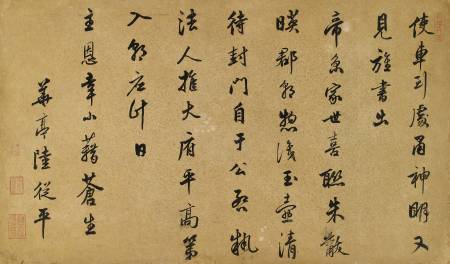 使車到處留神明又
見旌書出
帝家世喜聯朱黻
暎郡玉壺清
待封門自于公啟執
法人推大府平高第
入朝應計日
主恩幸小藉蒼生
華亭陸從平